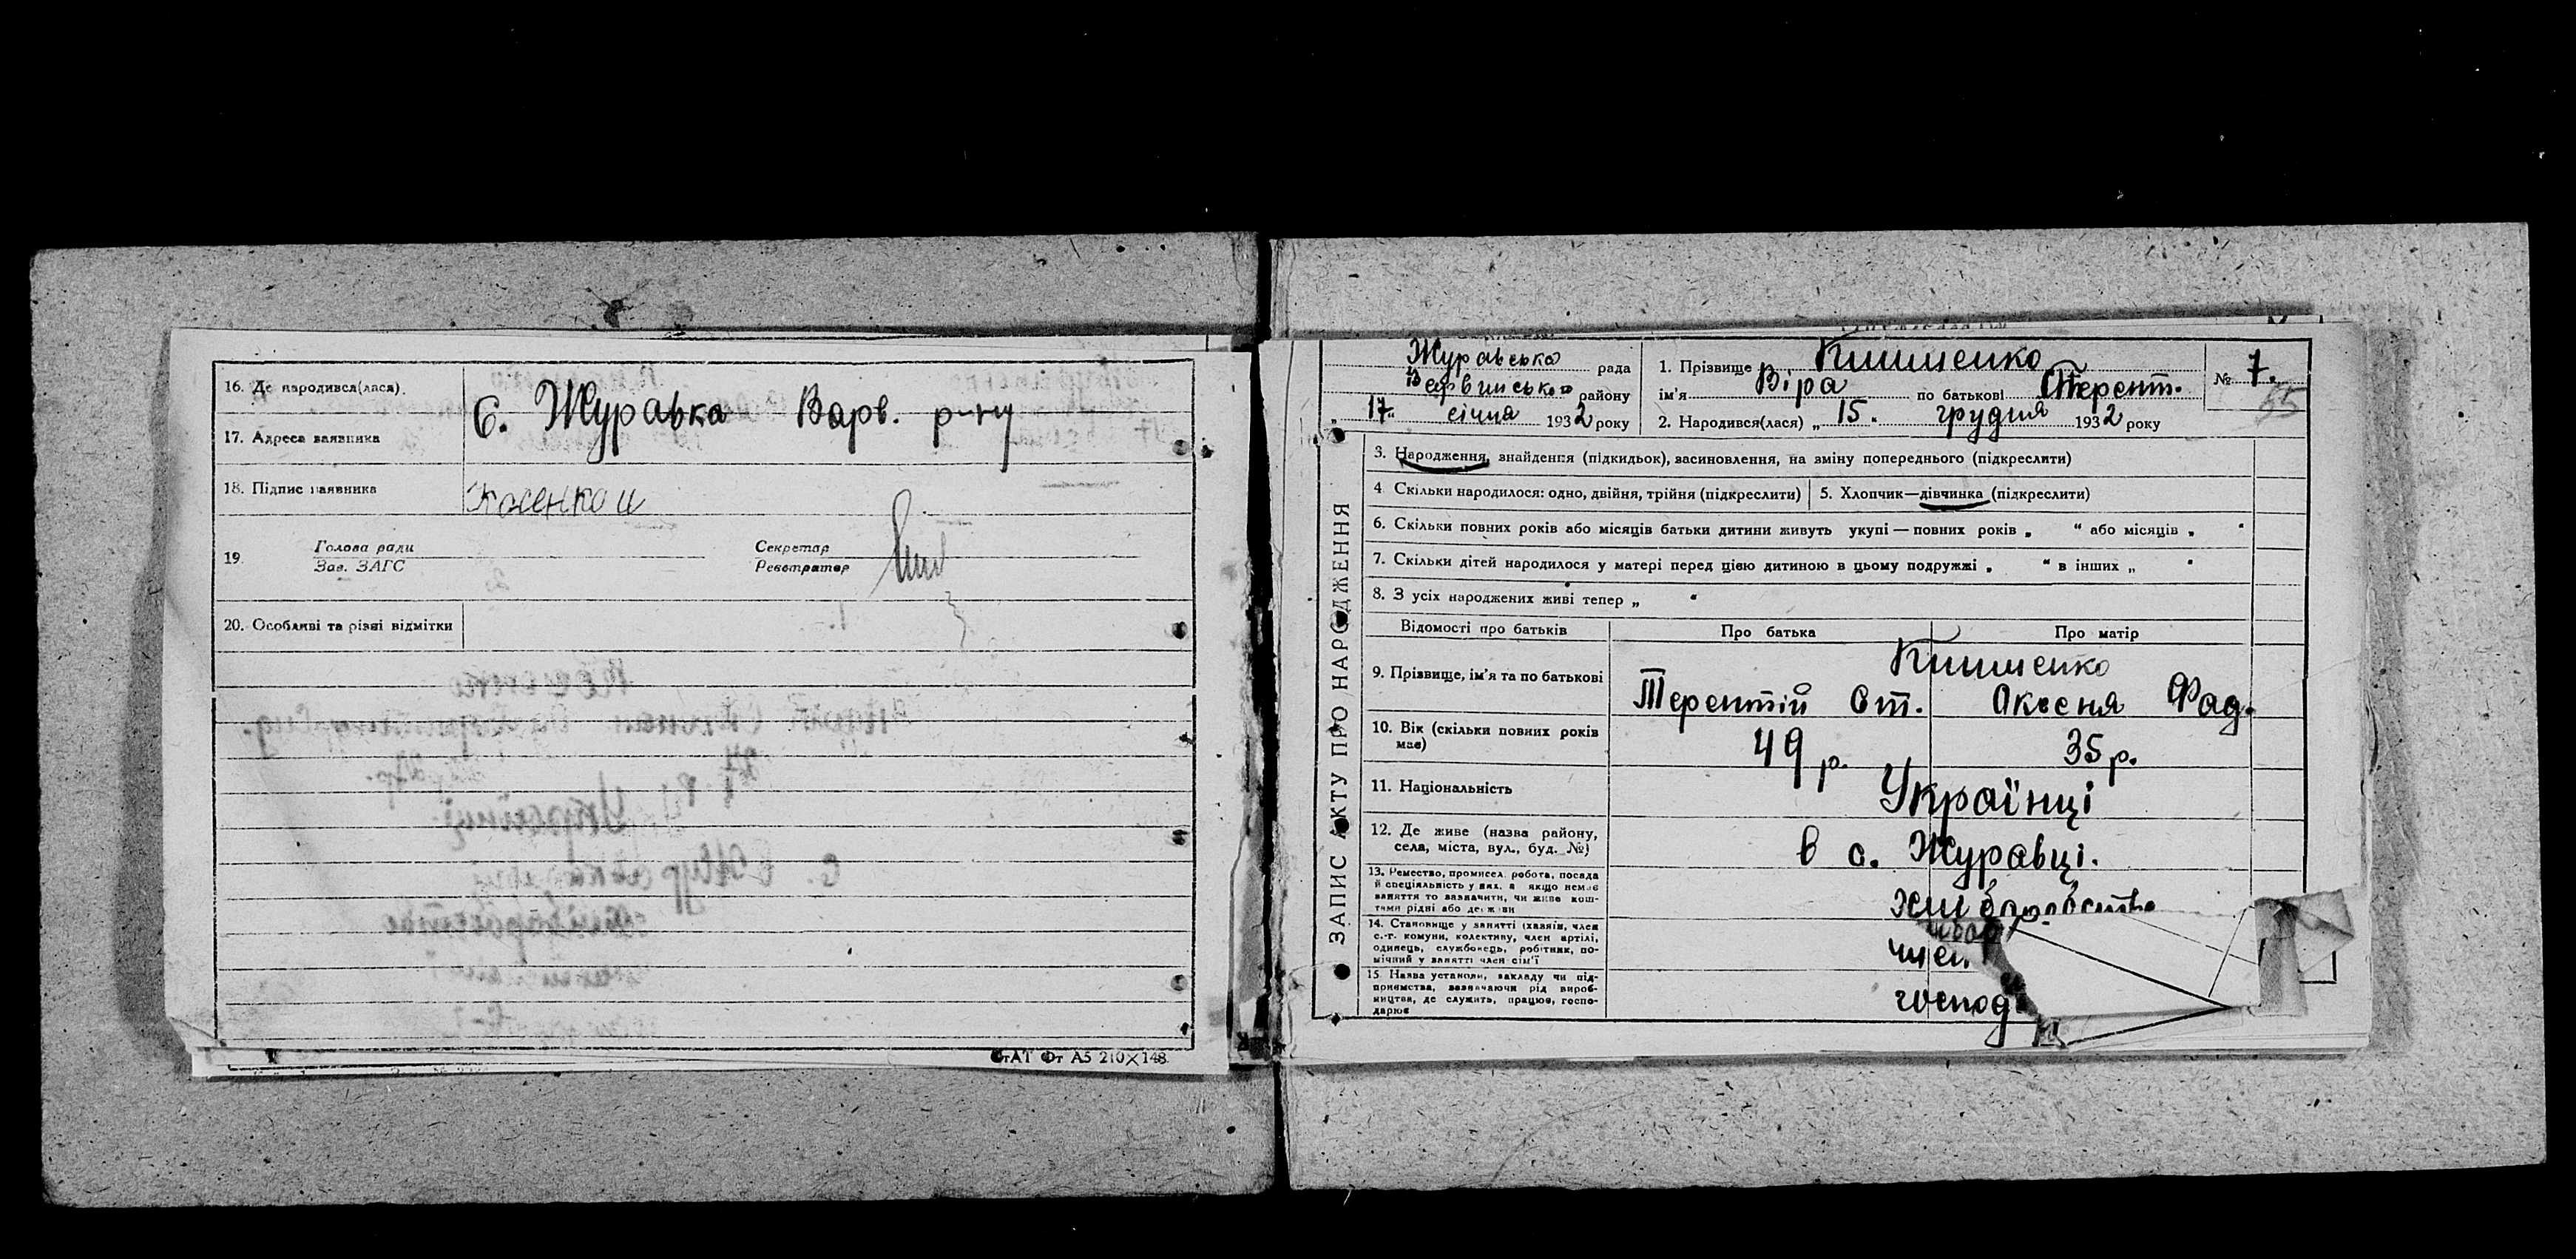 16. Де народився(лася)
с. Журавка Варв. р-ну
17. Адреса заявника
18. Підпис заявника
19. Голова ради
Зав. ЗАГС
Секретар
Реєстратор
20. Особливі та різні відмітки
А5 210×148
ЗАПИС АКТУ ПРО НАРОДЖЕННЯ
Журавська рада
району
„ 17 „ січня 1932 року
1. Прізвище
ім'я Віра по батькові Терент.
2. Народився(лася) „ 15 . грудня 1932 року
№ 7.
55
3. Народження, знайдення (підкидьок), засиновлення, на зміну попереднього (підкреслити)
4. Скільки народилося: одно, двійня, трійня (підкреслити)
5. Хлопчик—дівчинка (підкреслити)
6. Скільки повних років або місяців батьки дитини живуть укупі — повних років „ “ або місяців „ “
7. Скільки дітей народилося у матері перед цією дитиною в цьому подружжі „ “ в інших „ “
8. З усіх народжених живі тепер „ “
Відомості про батьків
Про батька
Про матір
9. Прізвище, ім'я та по батькові
Терентій Ст.
Оксеня Фад.
10. Вік (скільки повних років має)
49 р.
35 р.
11. Національність
Українці
12. Де живе (назва району,
села, міста, вул., буд. №)
в с. Журавці.
13. Ремество, промисел, робота, посада
й спеціяльність у них, а якщо немає
заняття то зазначити, чи живе кош-
тами рідні або держави
хліборобство
14. Становище у занятті (хазяїн, член
с.-г. комуни, колективу, член артілі,
одинець, службовець, робітник, по-
мічний у занятті член сім'ї
член
15. Назва установи, закладу чи під-
приємства, зазначаючи рід вироб-
ництва, де служить, працює, госпо-
дарює
господ